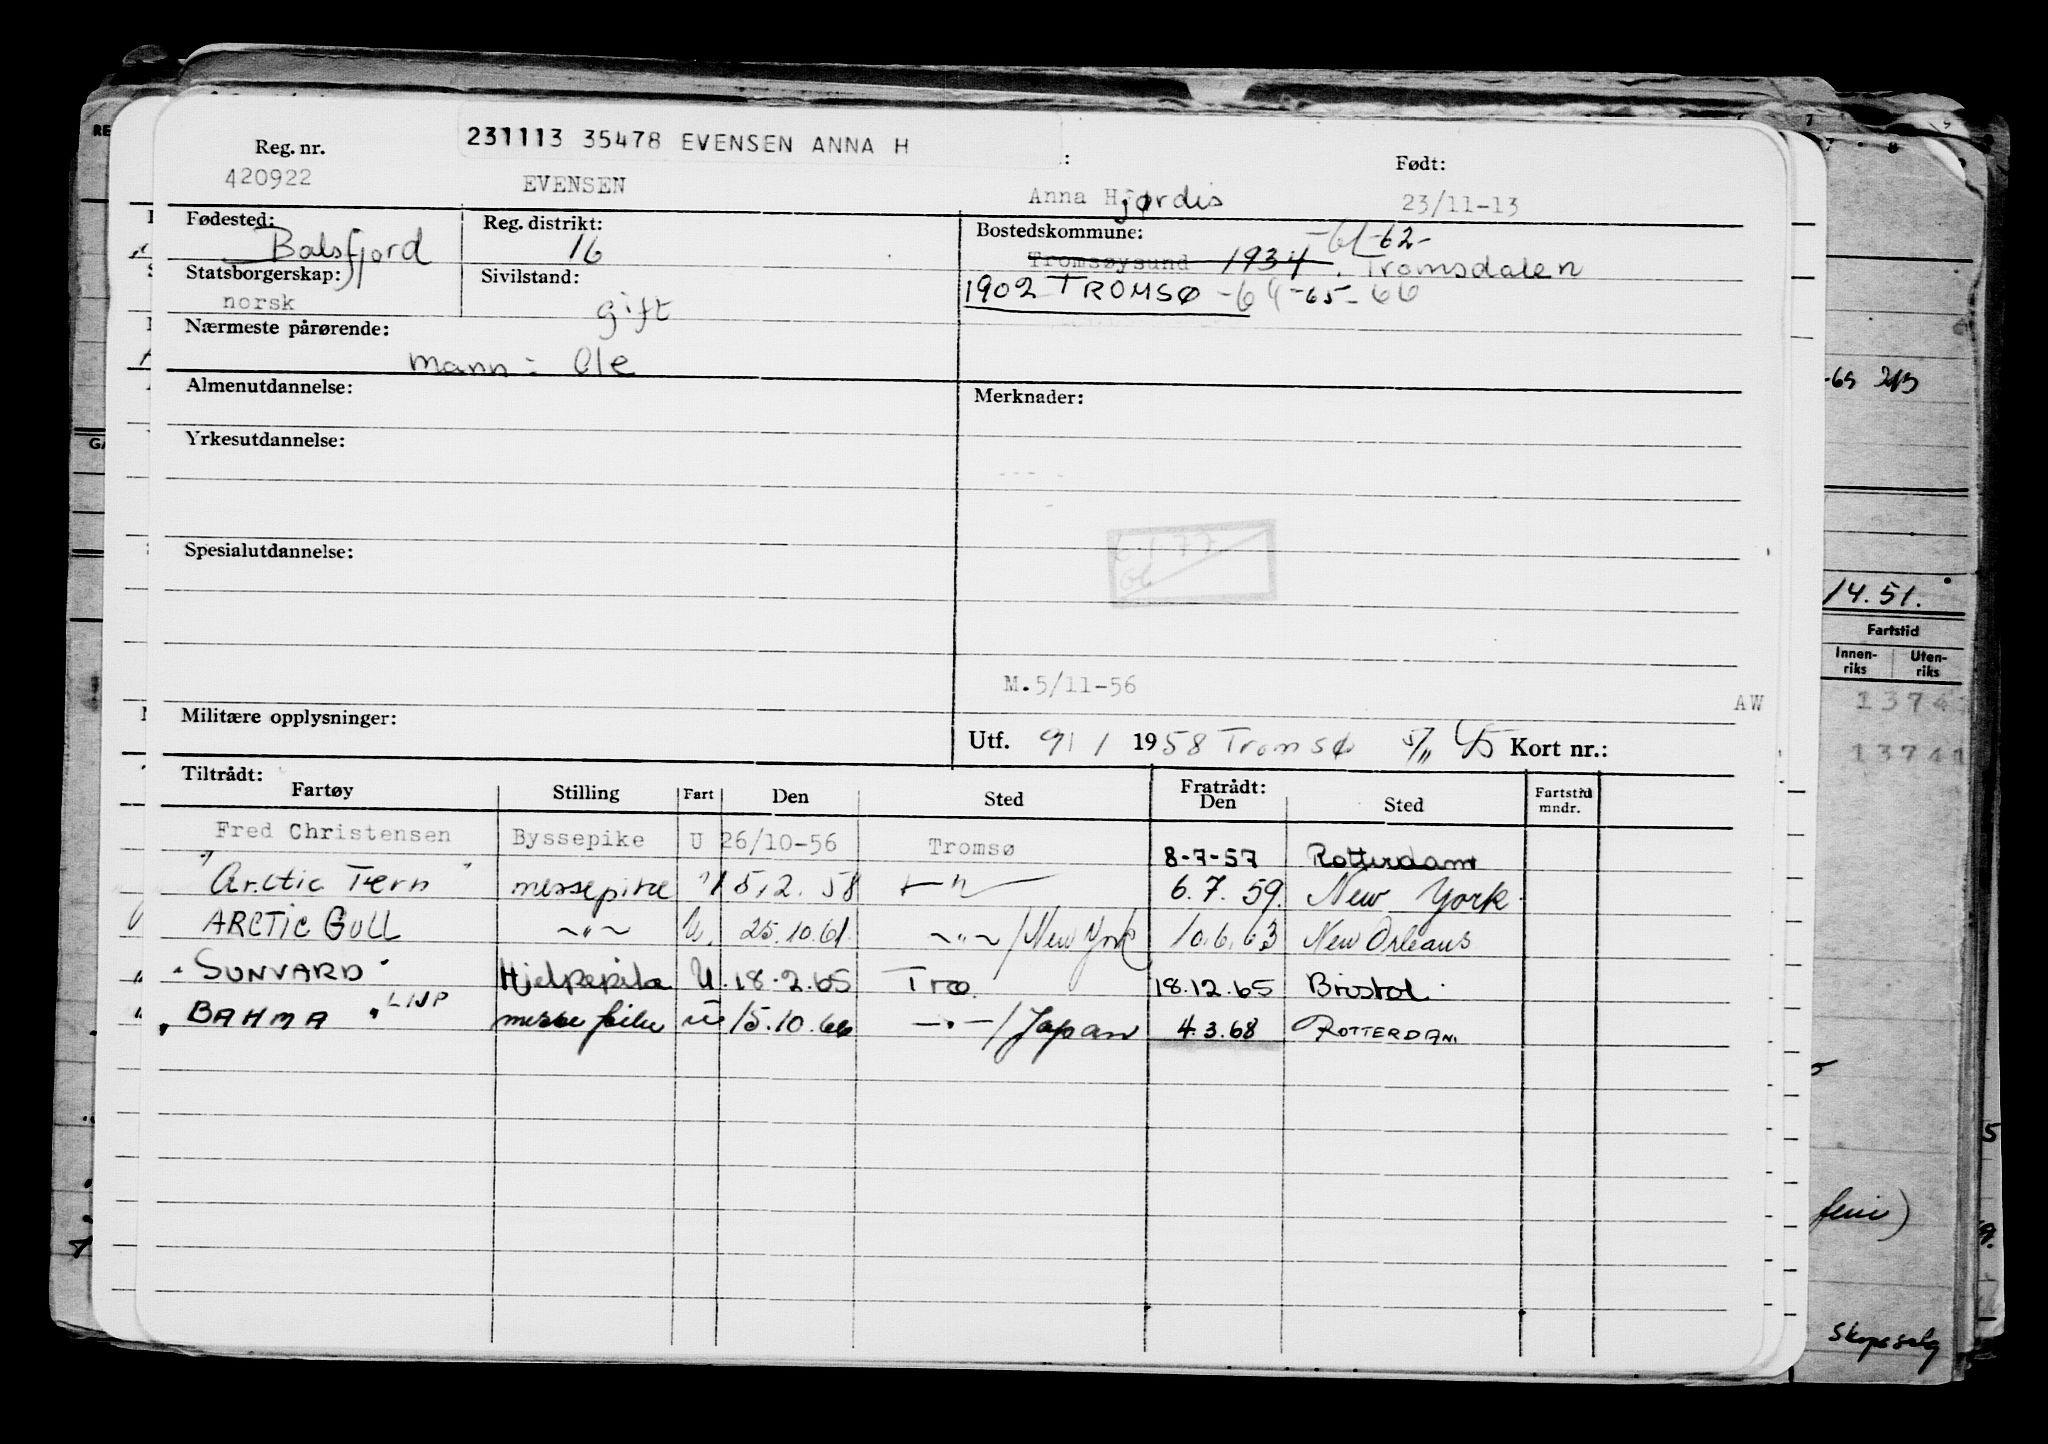 231113 35478 EVENSEN ANNA H
Reg. nr. Født:
420922 EVENSEN Anna Hjørdis 23/11-13
Fødested: Reg. distrikt: Bostedskommune: -61-62-
Balsfjord 16 Tromsøysund 1934 Tromsdalen
Statsborgerskap: Sivilstand: 1902 TROMSØ -64-65-66
norsk gift
Nærmeste pårørende:
mann: Ole
Almenutdannelse: Merknader:
Yrkesutdannelse:
Spesialutdannelse:
M.5/11-56 AW
Militære opplysninger: Utf. 9/1 1958 Tromsø Kort nr.:
Tiltrådt: Fratrådt:
Fartøy Stilling Fart Den Sted Den Sted Fartstid mndr.
Fred Christensen Byssepike U 26/10-56 Tromsø 8-7-57 Rotterdam
"Arctic Tern" messepike " 5.2.58 —"— 6.7.59. New York
ARCTIC GULL ~"~ U. 25.10.61 ~"~/New York 10.6.63 New Orleans
"SUNVARD" Hjelpepike U. 18.2.65 Trø. 18.12.65 Bristol
"BAHMA" messepike U 15.10.66 —"—/Japan 4.3.68 ROTTERDAM
14.51.
Fartstid
Innen-riks Uten-riks
1374
1374